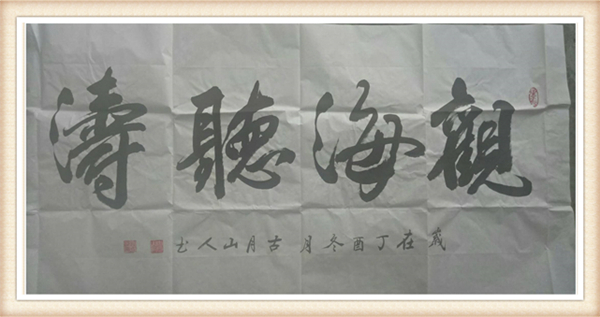 觀海聽濤
歲在丁酉冬月古月山人书